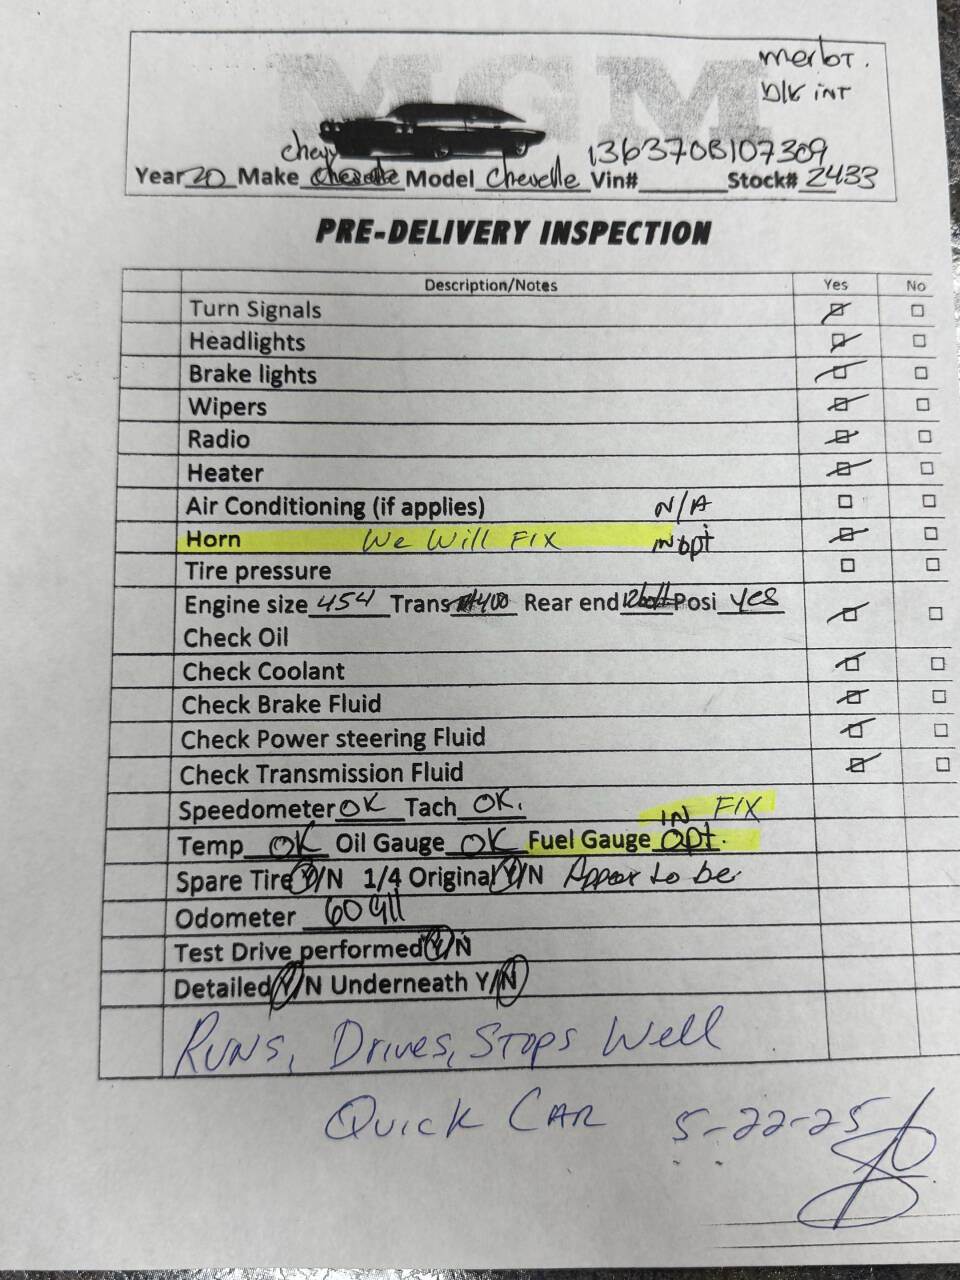 MGM
merlot.
blk int
chevy 136370B107309
Year 70 Make Model Chevelle Vin# Stock# 2433
PRE-DELIVERY INSPECTION
Description/Notes Yes No
Turn Signals
Headlights
Brake lights
Wipers
Radio
Heater
Air Conditioning (if applies) N/A
Horn We Will FIX in opt
Tire pressure
Engine size 454 Trans 400 Rear end 12 bolt Posi yes
Check Oil
Check Coolant
Check Brake Fluid
Check Power steering Fluid
Check Transmission Fluid
Speedometer OK Tach OK. IN FIX
Temp OK Oil Gauge OK Fuel Gauge opt.
Spare Tire Y/N 1/4 Original Y/N Appear to be
Odometer 60911
Test Drive performed Y/N
Detailed Y/N Underneath Y/N
Runs, Drives, Stops Well
Quick Car 5-22-25